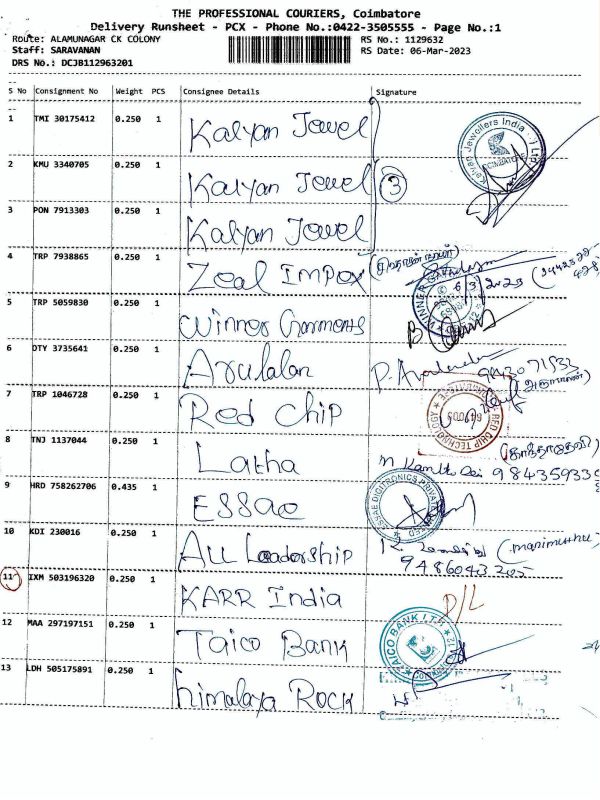 THE PROFESSIONAL COURIERS, Coimbatore
Delivery Runsheet - PCX - Phone No.:0422-3505555 - Page No.:1
Route: ALAMUNAGAR CK COLONY RS No.: 1129632
Staff: SARAVANAN RS Date: 06-Mar-2023
DRS No.: DCJB112963201
S No Consignment No Weight PCS Consignee Details Signature
1 TMI 30175412 0.250 1 Kalyan Jewel
2 KMU 3340705 0.250 1 Kalyan Jewel 3
3 PON 7913303 0.250 1 Kalyan Jewel
4 TRP 7938865 0.250 1 Zeal IMPEX
6/3/2023
5 TRP 5059830 0.250 1 Winner Garments
6 DTY 3735641 0.250 1 Arulalan
9843071932
7 TRP 1046728 0.250 1 Red Chip
RED CHIP TECHNOLOGY
8 TNJ 1137044 0.250 1 Latha
984359339
9 HRD 758262706 0.435 1 ESSAE
10 KDI 230016 0.250 1 ALL Leadership
(manimuthu
9486043205
11 IXM 503196320 0.250 1 KARR India D/L
12 MAA 297197151 0.250 1 Taico Bank
TAICO BANK LTD
13 LDH 505175891 0.250 1 himalaya Rock